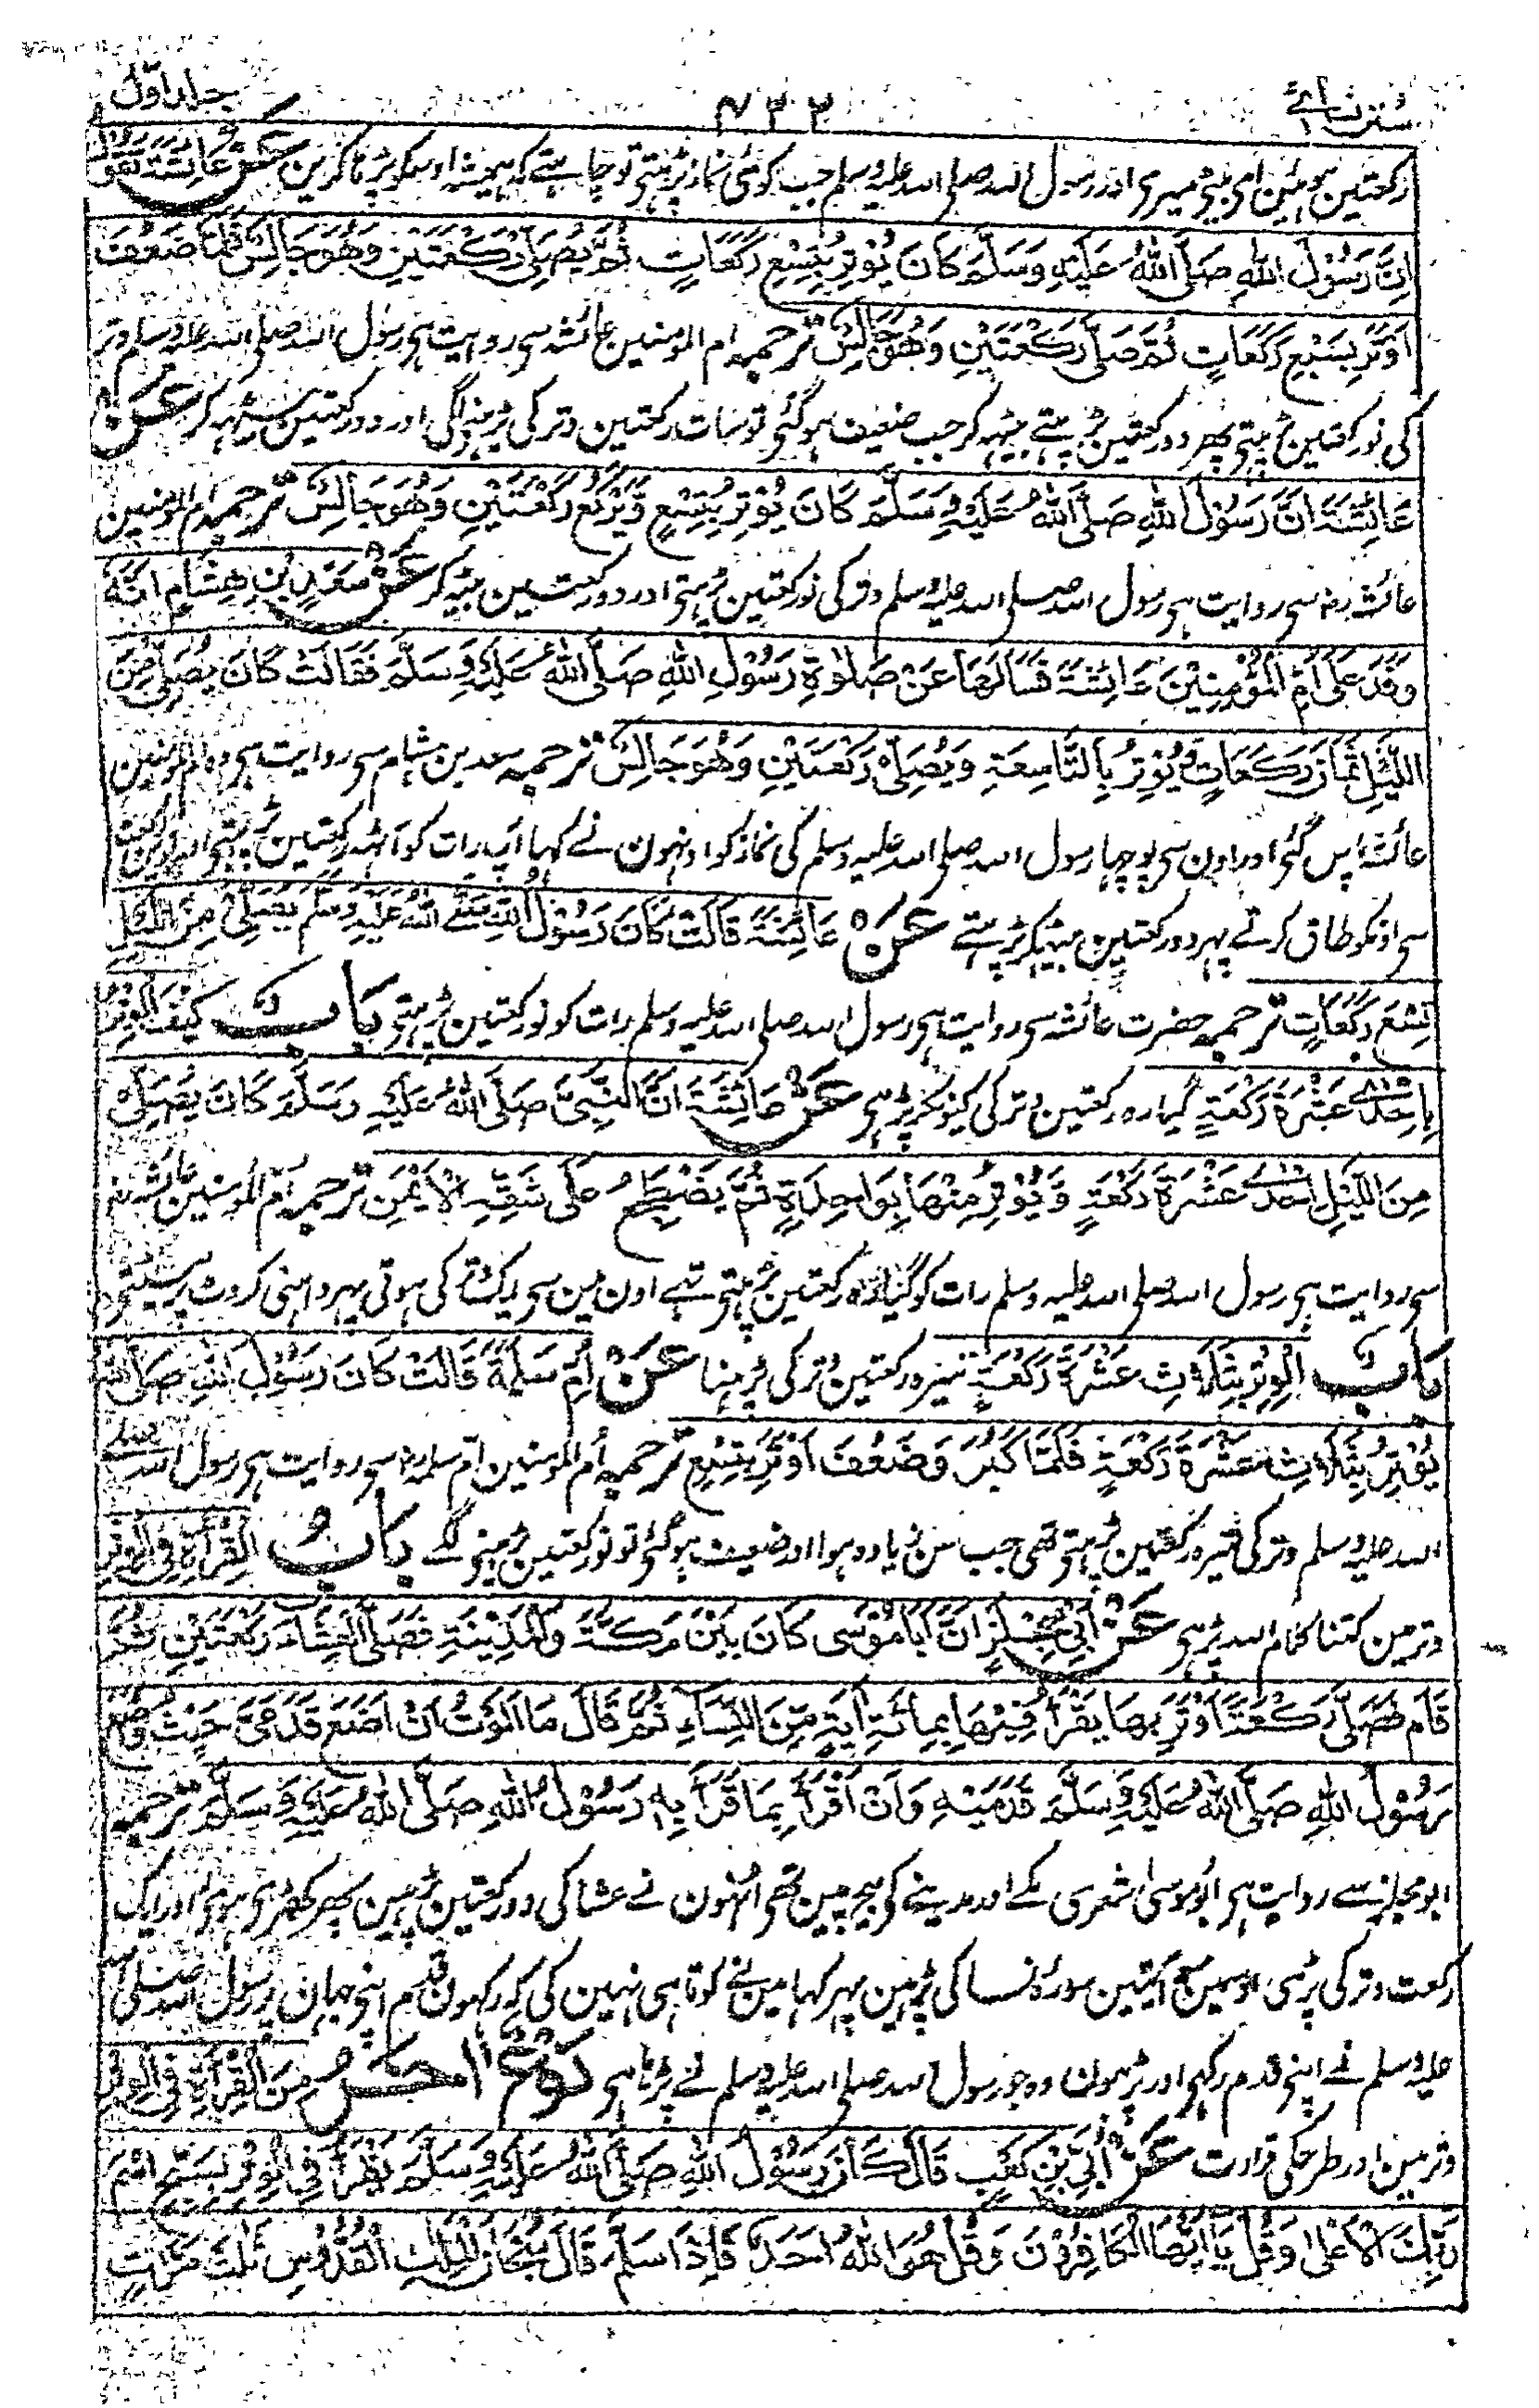 سنن نسائی ۴۳۲ جلد اول
رکعتین ہوئین ای بیٹے میری اور رسول اللہ صلی اللہ علیہ وسلم جب کوئی نماز پڑہتے تو چاہتے کہ ہمیشہ اوسکو پڑہا کرین عَنْ عَائِشَةَ تَقُوْلُ
اِنَّ رَسُوْلَ اللّٰهِ صَلَّی اللّٰهُ عَلَیْهِ وَسَلَّمَ کَانَ یُوْتِرُ بِتِسْعِ رَکَعَاتٍ ثُمَّ یُصَلِّیْ رَکْعَتَیْنِ وَهُوَ جَالِسٌ فَلَمَّا ضَعُفَ
اَوْتَرَ بِسَبْعِ رَکَعَاتٍ ثُمَّ صَلّٰی رَکْعَتَیْنِ وَهُوَ جَالِسٌ ترجمہ ام المومنین عائشہ سے روایت ہی رسول اللہ صلی اللہ علیہ وسلم وتر
کی نو رکعتین پڑہتے پھر دو رکعتین پڑہتے بیٹہہ کر جب ضعیف ہو گئے تو سات رکعتین وتر کی پڑہنے لگے اور دو رکعتین بیٹہہ کر عَنْ
عَائِشَةَ اَنَّ رَسُوْلَ اللّٰهِ صَلَّی اللّٰهُ عَلَیْهِ وَسَلَّمَ کَانَ یُوْتِرُ بِتِسْعٍ وَّیَرْکَعُ رَکْعَتَیْنِ وَهُوَ جَالِسٌ ترجمہ ام المومنین
عائشہ رضہ سے روایت ہی رسول اللہ صلی اللہ علیہ وسلم وتر کی نو رکعتین پڑہتے اور دو رکعتین بیٹہہ کر عَنْ سَعْدِ بْنِ هِشَامٍ اَنَّهٗ
وَفَدَ عَلٰی اُمِّ الْمُؤْمِنِیْنَ عَائِشَةَ فَسَاَلَهَا عَنْ صَلٰوةِ رَسُوْلِ اللّٰهِ صَلَّی اللّٰهُ عَلَیْهِ وَسَلَّمَ فَقَالَتْ کَانَ یُصَلِّیْ مِنَ
اللَّیْلِ ثَمَانَ رَکَعَاتٍ وَّیُوْتِرُ بِالتَّاسِعَةِ وَیُصَلِّیْ رَکْعَتَیْنِ وَهُوَ جَالِسٌ ترجمہ سعد بن ہشام سے روایت ہی وہ ام المومنین
عائشہ پاس گئے اور اون سے پوچہا رسول اللہ صلی اللہ علیہ وسلم کی نماز کو اونہون نے کہا آپ رات کو آٹہہ رکعتین پڑہتے اور نوین رکعت
سے اونکو طاق کرتے پہر دو رکعتین بیٹہکر پڑہتے عَنْ عَائِشَةَ قَالَتْ کَانَ رَسُوْلُ اللّٰهِ صَلَّی اللّٰهُ عَلَیْهِ وَسَلَّمَ یُصَلِّیْ مِنَ اللَّیْلِ
تِسْعَ رَکَعَاتٍ ترجمہ حضرت عائشہ سے روایت ہی رسول اللہ صلی اللہ علیہ وسلم رات کو نو رکعتین پڑہتے بَابُ کَیْفَ الْوِتْرُ
بِاِحْدٰی عَشْرَةَ رَکْعَةٍ گیارہ رکعتین وتر کی کیونکر پڑہے عَنْ عَائِشَةَ اَنَّ النَّبِیَّ صَلَّی اللّٰهُ عَلَیْهِ وَسَلَّمَ کَانَ یُصَلِّیْ
مِنَ اللَّیْلِ اِحْدٰی عَشْرَةَ رَکْعَةٍ وَّیُوْتِرُ مِنْهَا بِوَاحِدَةٍ ثُمَّ یَضْطَجِعُ عَلٰی شَقِّهِ الْاَیْمَنِ ترجمہ ام المومنین عائشہ رضہ
سے روایت ہی رسول اللہ صلی اللہ علیہ وسلم رات کو گیارہ رکعتین پڑہتے تہے اون مین سے ایک وتر کی ہوتی پہر داہنی کروٹ پر لیٹتے
بَابُ الْوِتْرِ بِثَلَاثِ عَشْرَةَ رَکْعَةٍ تیرہ رکعتین وتر کی پڑہنا عَنْ اُمِّ سَلَمَةَ قَالَتْ کَانَ رَسُوْلُ اللّٰهِ صَلَّی اللّٰهُ
یُوْتِرُ بِثَلَاثِ عَشْرَةَ رَکْعَةٍ فَلَمَّا کَبُرَ وَضَعُفَ اَوْتَرَ بِتِسْعٍ ترجمہ ام المومنین ام سلمہ رضہ سے روایت ہی رسول اللہ صلی
اللہ علیہ وسلم وتر کی تیرہ رکعتین پڑہتے تہی جب سن زیادہ ہوا اور ضعیف ہو گئے تو نو رکعتین پڑہنے لگے بَابُ الْقِرَأَةِ فِی الْوِتْرِ
وتر مین کتنا کلام اللہ پڑہے عَنْ اَبِیْ مِجْلَزٍ اَنَّ اَبَا مُوْسٰی کَانَ بَیْنَ مَکَّةَ وَالْمَدِیْنَةِ فَصَلَّی الْعِشَاءَ رَکْعَتَیْنِ ثُمَّ
قَامَ فَصَلّٰی رَکْعَةً اَوْتَرَ بِهَا یَقْرَأُ فِیْهَا بِمِائَةِ اٰیَةٍ مِّنَ النِّسَاءِ ثُمَّ قَالَ مَا اَلَوْتُ اَنْ اَضَعَ قَدَمَیَّ حَیْثُ وَضَعَ
رَسُوْلُ اللّٰهِ صَلَّی اللّٰهُ عَلَیْهِ وَسَلَّمَ قَدَمَیْهِ وَاَنْ اَقْرَأَ بِمَا قَرَأَ بِهٖ رَسُوْلُ اللّٰهِ صَلَّی اللّٰهُ عَلَیْهِ وَسَلَّمَ ترجمہ
ابو مجلز سے روایت ہی ابو موسیٰ اشعری مکے اور مدینے کی بیچ مین تہے انہون نے عشا کی دو رکعتین پڑہین پہر کہڑی ہوئی اور ایک
رکعت وتر کی پڑہی اوسمین سو آیتین سورۂ نسا کی پڑہین پہر کہا مین نے کوتاہی نہین کی کہ رکہون قدم اپنے جہان رسول اللہ صلی اللہ
علیہ وسلم نے اپنے قدم رکہے اور پڑہون وہ جو رسول اللہ صلی اللہ علیہ وسلم نے پڑہا ہی نَوْعٌ اٰخَرُ مِنَ الْقِرَأَةِ فِی الْوِتْرِ
وتر مین اور طرحکی قراءت عَنْ اُبَیِّ بْنِ کَعْبٍ قَالَ کَانَ رَسُوْلُ اللّٰهِ صَلَّی اللّٰهُ عَلَیْهِ وَسَلَّمَ یَقْرَأُ فِی الْوِتْرِ بِسَبِّحِ اسْمَ
رَبِّكَ الْاَعْلٰی وَقُلْ یَا اَیُّهَا الْکَافِرُوْنَ وَقُلْ هُوَ اللّٰهُ اَحَدٌ فَاِذَا سَلَّمَ قَالَ سُبْحَانَ الْمَلِكِ الْقُدُّوْسِ ثَلٰثَ مَرَّاتٍ